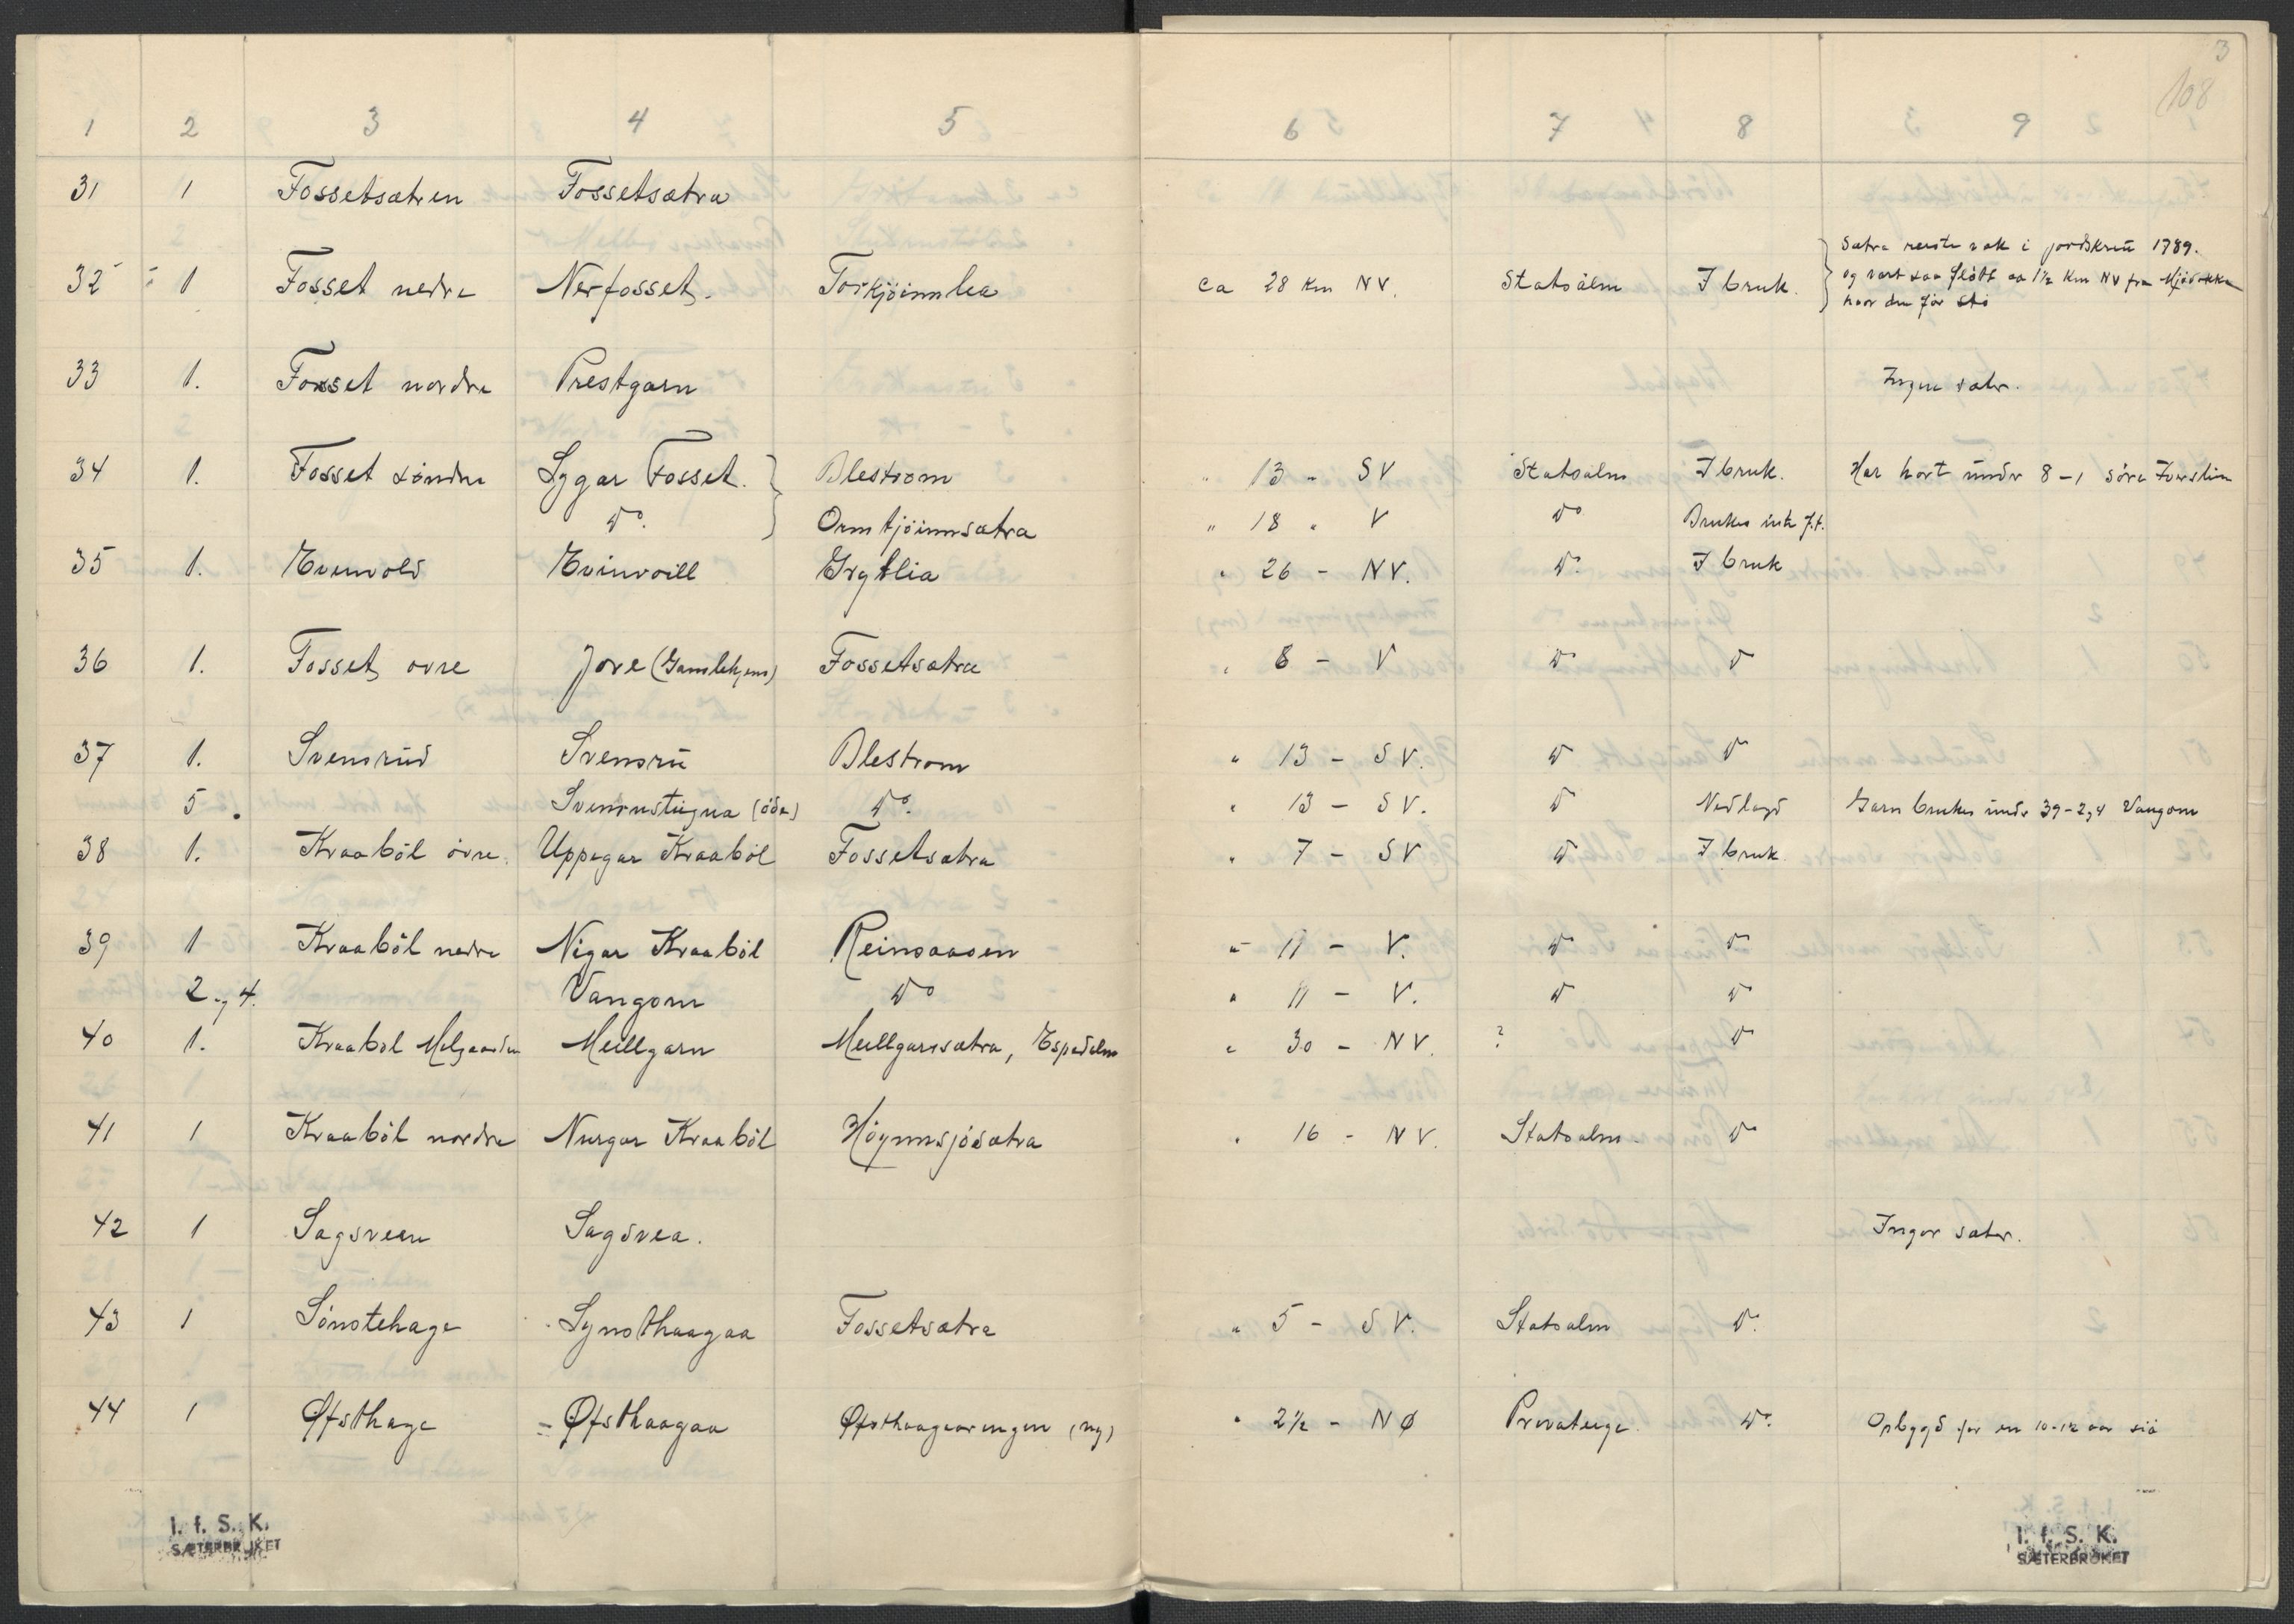 3
108
1 2 3 4 5 6 7 8 9
31 1 Fossetsætren Fossetsætra
32 1 Fosset nedre Nerfosset. Torkjöinnlia ca 28 km NV. Statsalm I bruk. Sætra reiste væk i jordskreii 1789.
og vart saa flött ca 1½ km NV fra
hvor den för sto
33 1. Fosset nordre Prestgarn Ingen sæter.
34 1. Fosset söndre Sygar Fosset. Blestrom " 13 - SV Statsalm I bruk. Har hört under 8-1 Söre
do. Ormtjöinnsætra " 18 " V do Brukes inte f.t.
35 1. Evenvold Evinvoill Grytlia " 26 - NV. do. I bruk
36 1. Fosset ovre Jore (Gamlehjem) Fossetsætra " 8 - V do do
37 1. Svensrud Svensru Blestrom " 13 - SV. do do
5. Svensrustugua (öde) do. " 13 - SV. do Nedlagd Garn brukes under 39-2,4 Vangom
38 1. Kraaböl övre. Uppegar Kraaböl Fossetsætra " 7 - SV do I bruk
39 1 Kraaböl nedre Nigar Kraaböl Reinsaasen " 11 - V. do do
2 og 4. Vangom do " 11 - V. do do
40 1. Kraabol Melgaarden Meillgarn Meillgarssætra, Espedalen " 30 - NV. ? do
41 1 Kraaböl nordre Nurgar Kraaböl Höynnsjösætra " 16 - NV. Statsalm do
42 1 Sagsveen Sagsvea. Ingor sæter.
43 1 Sönstehage Synsthaagaa Fossetsætra " 5 - SV. Statsalm do.
44 1 Øfsthage = Øfsthaagaa Øfsthaagaavengen (ny) " 2½ - NØ Privateige. do. Opbygd for en 10-12 aar sia
I. f. S. K.
SÆTERBRUKET
I. f. S. K.
SÆTERBRUKET